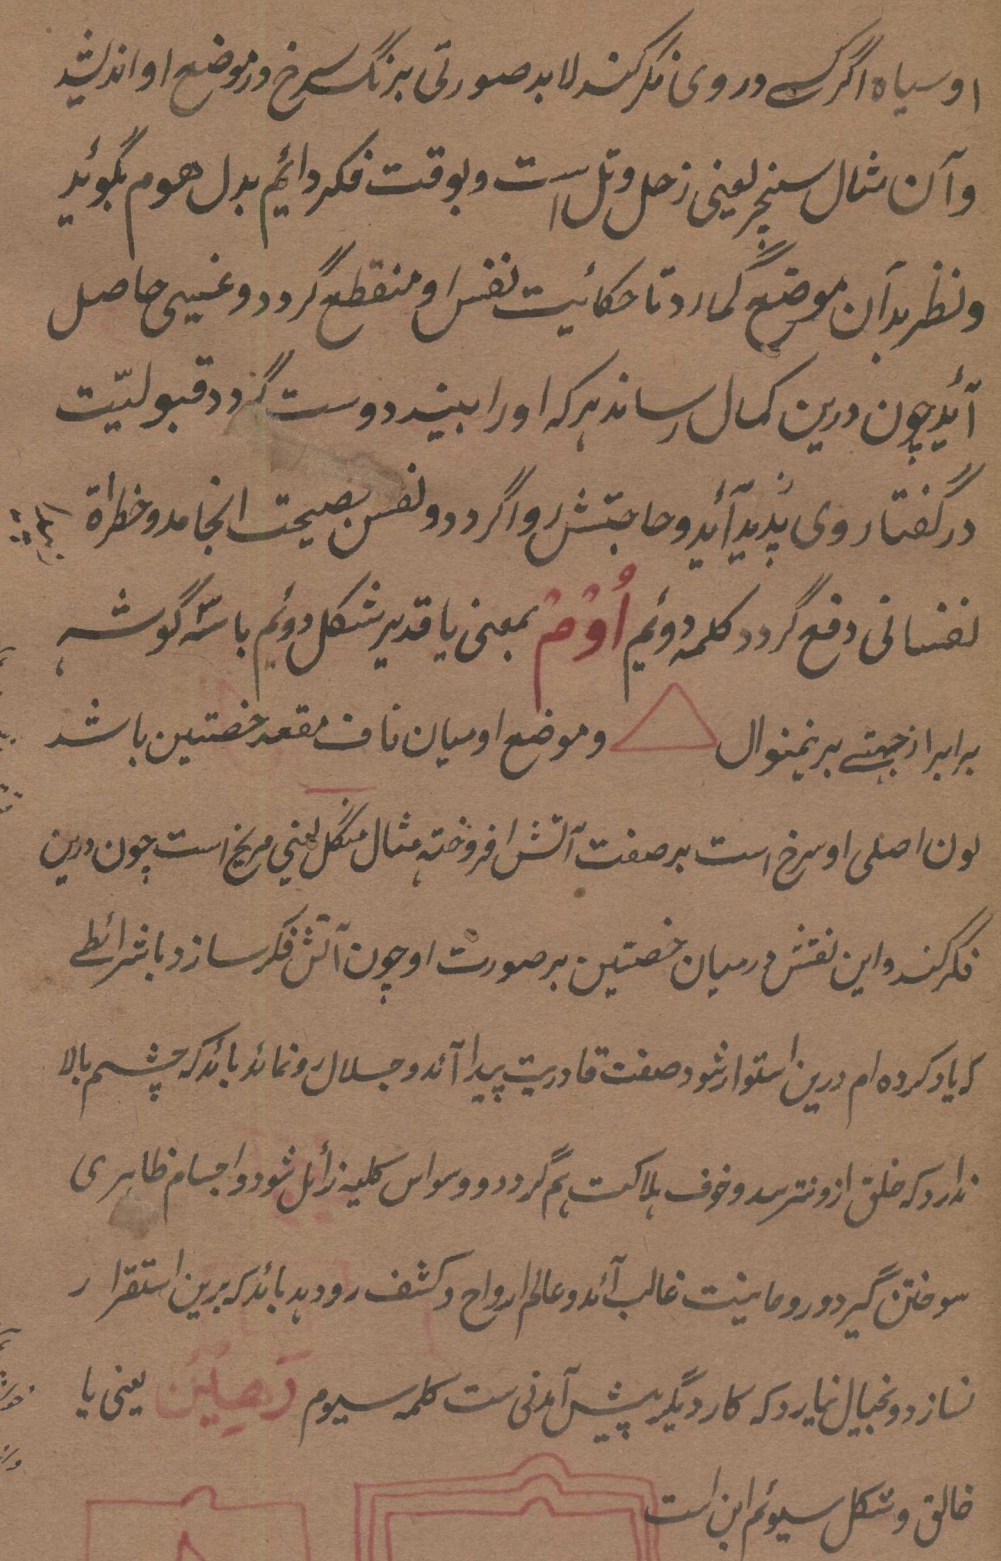 او سیاه اگر کسے در وی فکر کند لابد صورتی برنگ سرخ در موضع او اندیشد
و آن مثال سنیچر یعنی زحل و تل است و بوقت فکر دائم بدل هوم بگوئید
و نظر بدآن موضع گمارد تا حکائیت نفس او منقطع گردد و غیبی حاصل
آئد چون درین کمال رساند هرکه او را بیند دوست گردد قبولیّت
در گفتار وی پدید آئد و حاجتش روا گردد و نفس بصیحت انجامد و خطراة
نفسانی دفع گردد کلمه دوئم اُوْمْ بمعنی یا قدیر شکل دوئم با سه گوشه
برابر از جهتے برینمنوال و موضع او میان ناف مقعد خصتین باشد
لون اصلی او سرخ است بر صفت آتش افروخته مثال منگل یعنی مریخ است چون درین
فکر کند و این نقش درمیان خصتین بر صورت او چون آتش فکر سازد با شرائطے
که یاد کرده ام درین استوار شود صفت قادریت پیدا آئد و جلال رو نماند بائد که چشم بالا
ندارد که خلق ازو نترسد و خوف هلاکت هم گردد و وسواس کلیه زائل شود و اجسام ظاہری
سوختن گیرد و روحانیت غالب آئد و عالم ارواح و کشف رو دهد بائد که برین استقرار
نسازد و بخیال نیارد که کار دیگر پیش آمدنی ست کلمه سیوم یعنی یا
خالق و شکل سیوئم این است